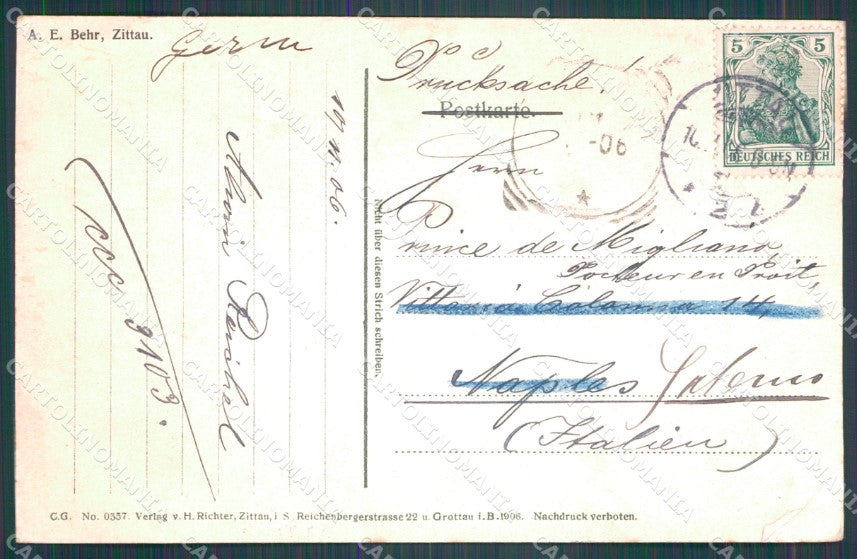 A. E. Behr, Zittau.
Germ
10 11. 06.
Alwin Reichel
ccc 3103.
Nicht über diesen Strich schreiben.
Drucksache!
Postkarte.
-06
5 5
DEUTSCHES REICH
Herrn
Prince de Migliano,
Docteur en Droit,
Vittoria Colonna 14,
Naples Salerno
(Italien)
C.G. No. 0357. Verlag v. H. Richter, Zittau, i. S. Reichenbergerstrasse 22 u. Grottau i. B. 1906. Nachdruck verboten.
CARTOLINOMANIA